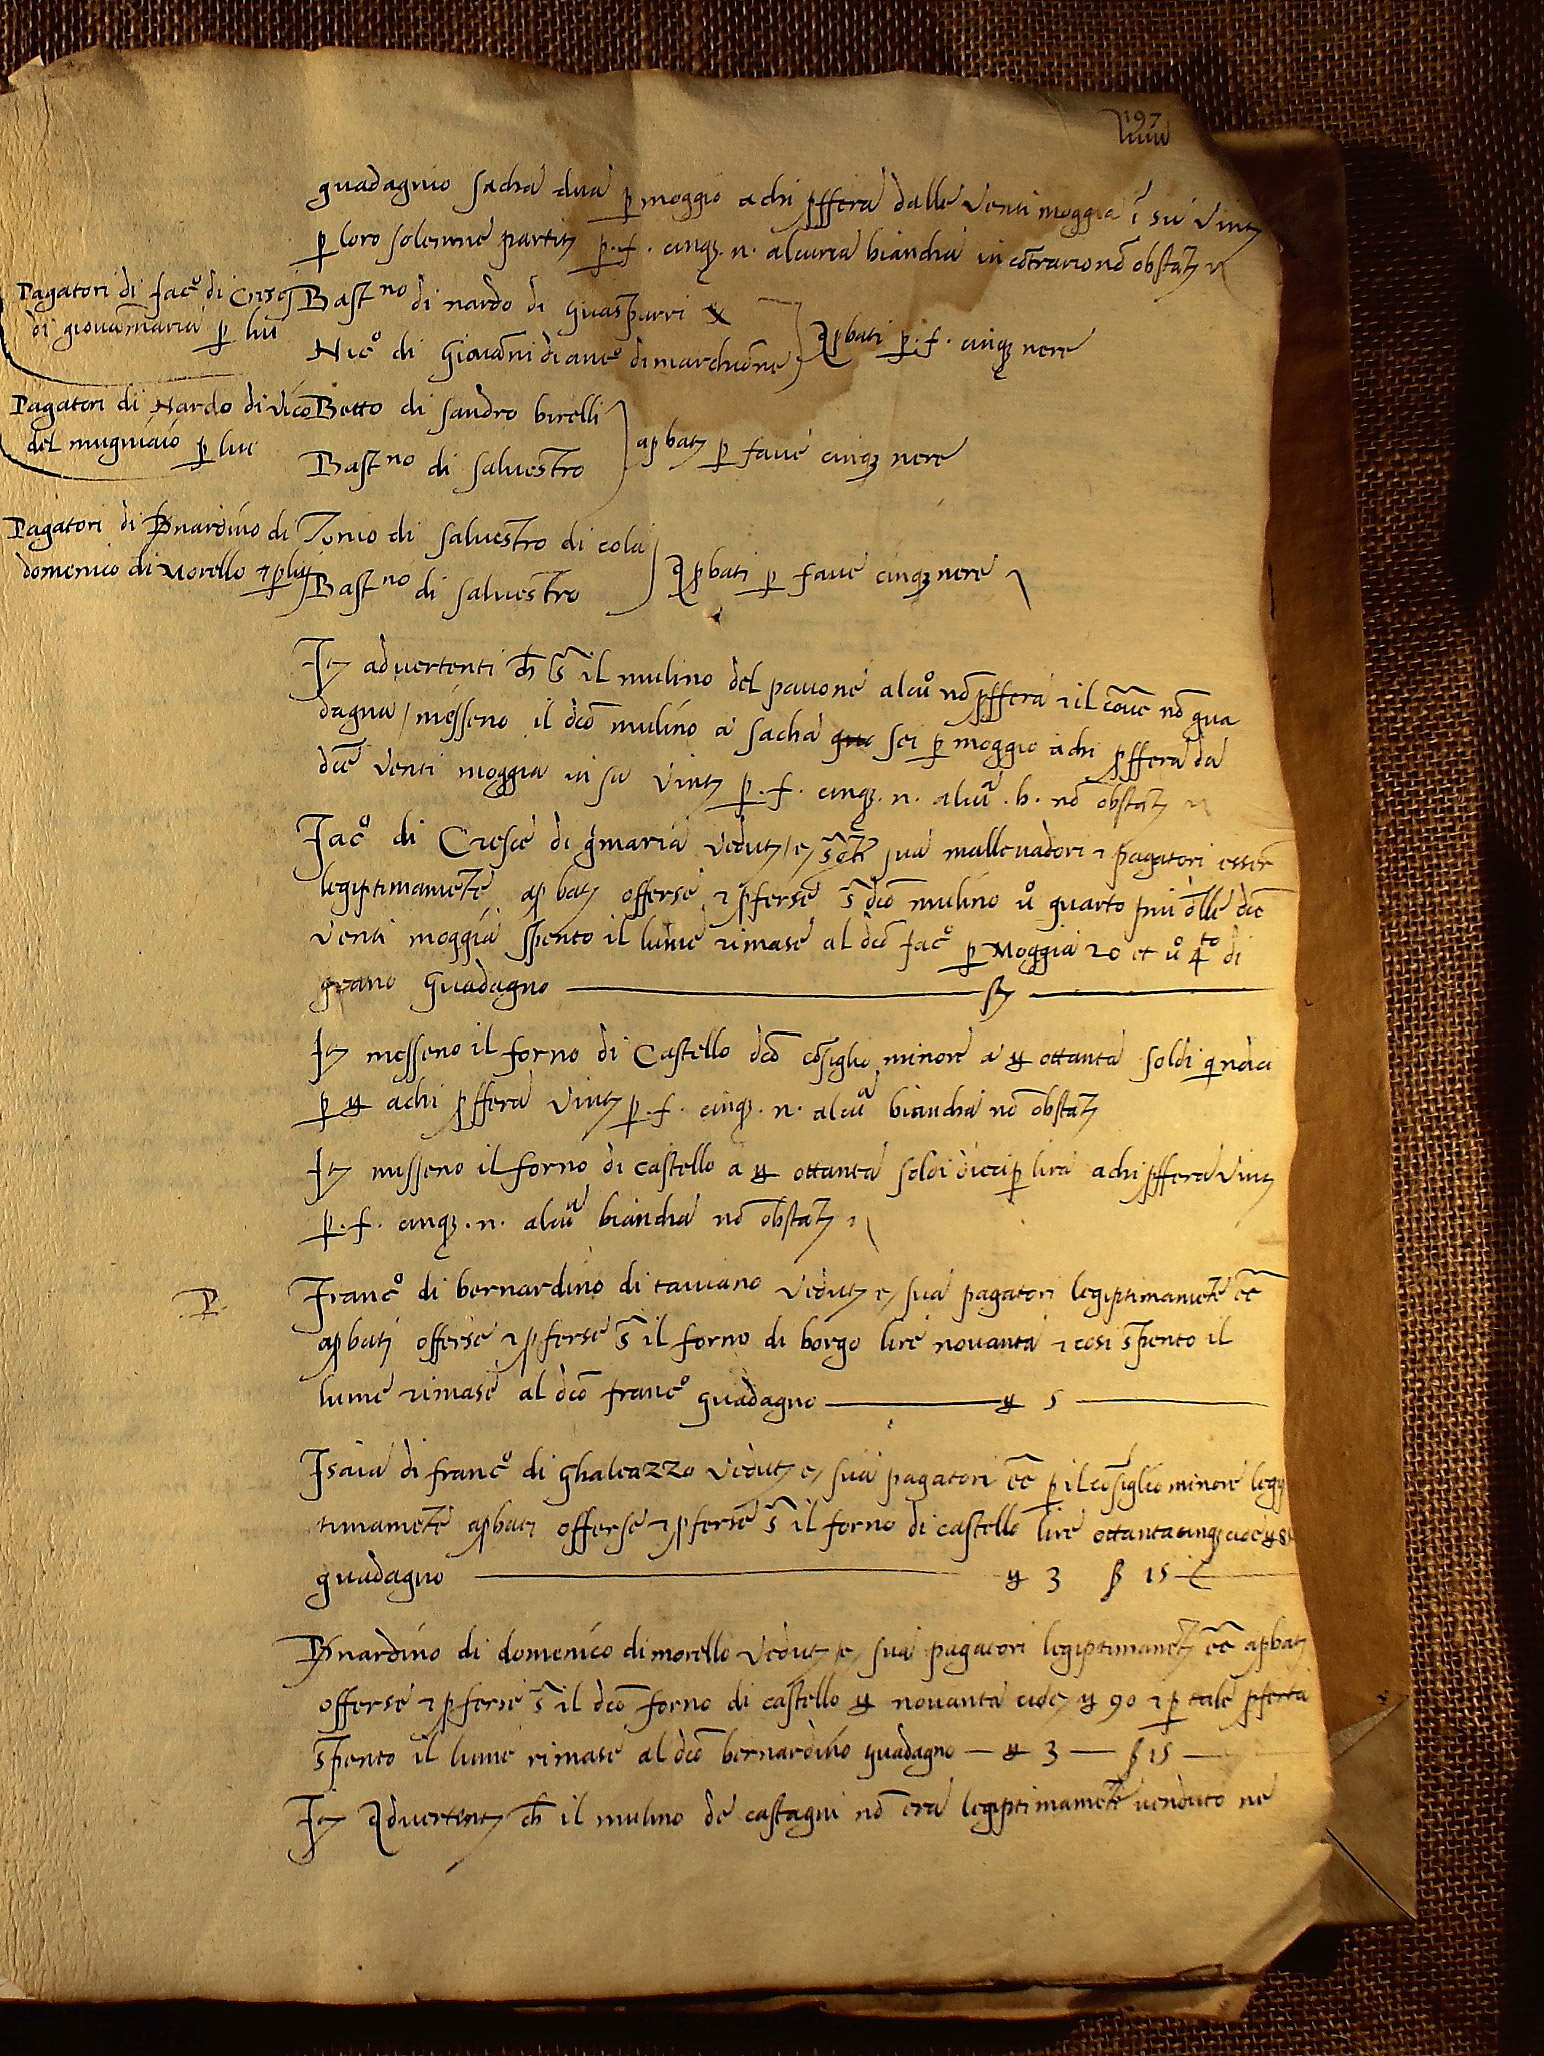 197
guadagnio sacha dua p moggio a chi pfferà dalle venti moggia ĩ su vint
p loro solenne partit p. f. cinq. n. alcuna biancha in cõtrario nõ obstat
Pagatori di Jac° di Cresci
di giovãmaria p lui
Bast no di nardo di Guasparri
Nic° di Giovãni di di marchiõne
apbati p. f. cinq nere
Pagatori di Nardo di vico
del mugniaio p lui
Betto di sandro birelli
Bast no di salvestro
apbat p fave cinq nere
Pagatori di Bnardino di
domenico di morello p lui
Tonio di salvestro di cola
Bast no di salvestro
apbati p fave cinq nere
It advertenti ch s il mulino del pavone alcũ nõ pfferà et il cõue nõ gua
dagna / messeno il dcõ mulino a sacha sei p moggio a chi pfferà da
dcẽ venti moggia in su vint p. f. cinq. n. alcũa. b. nõ obstat
Jac° di Cresce di gmaria vedut e sua mallevadori et pagatori esser
legiptimamẽte apbat offerse et pferse s dcõ mulino ũ quarto più delle dcẽ
venti moggia spento il lume rimase al dcõ Jac° p moggia 20 et ũ 4to di
grano Guadagno
It messeno il forno di Castello dcõ cõsiglio minore a ottanta soldi qndici
p a chi pfferà vint p. f. cinq. n. alcũa biancha nõ obstat
It misseno il forno di castello a ottanta soldi dieci p lira a chi pfferà vint
p. f. cinq. n. alcũa biancha nõ obstat
P.
Franc° di bernardino di taviano vedut e sua pagatori legiptimamẽte eẽ
apbati offerse et pferse s il forno di borgo lire novanta et cosi spento il
lume rimase al dcõ franc° guadagno 5
Isaia di franc° di Ghaleazzo vedut e sua pagatori eẽ p il cõsiglio minore legip
timamẽte apbati offerse et pferse s il forno di castello lire ottantacinq cioe
guadagno 3 ß 15
Bnardino di domenico di morello vedut e sua pagatori legiptimamẽt eẽ apbat
offerse et pferse s il dcõ forno di castello novanta cioe 90 et p tale pferta
spento il lume rimase al dcõ bernardino guadagno — 3 — ß 15 —
It Advertent ch il mulino de castagni nõ era legiptimamẽte venduto ne